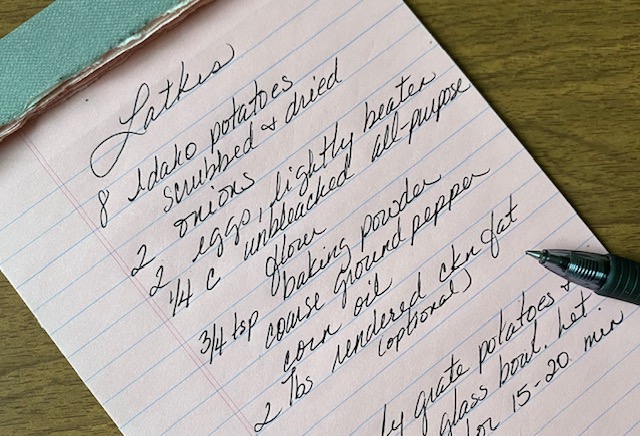 Latkes
8 Idaho potatoes
scrubbed & dried
2 onions
2 eggs, lightly beaten
1/4 c unbleached all-purpose
flour
3/4 tsp baking powder
coarse ground pepper
corn oil
2 lbs rendered ckn fat
(optional)
grate potatoes &
glass bowl. Let
or 15-20 min